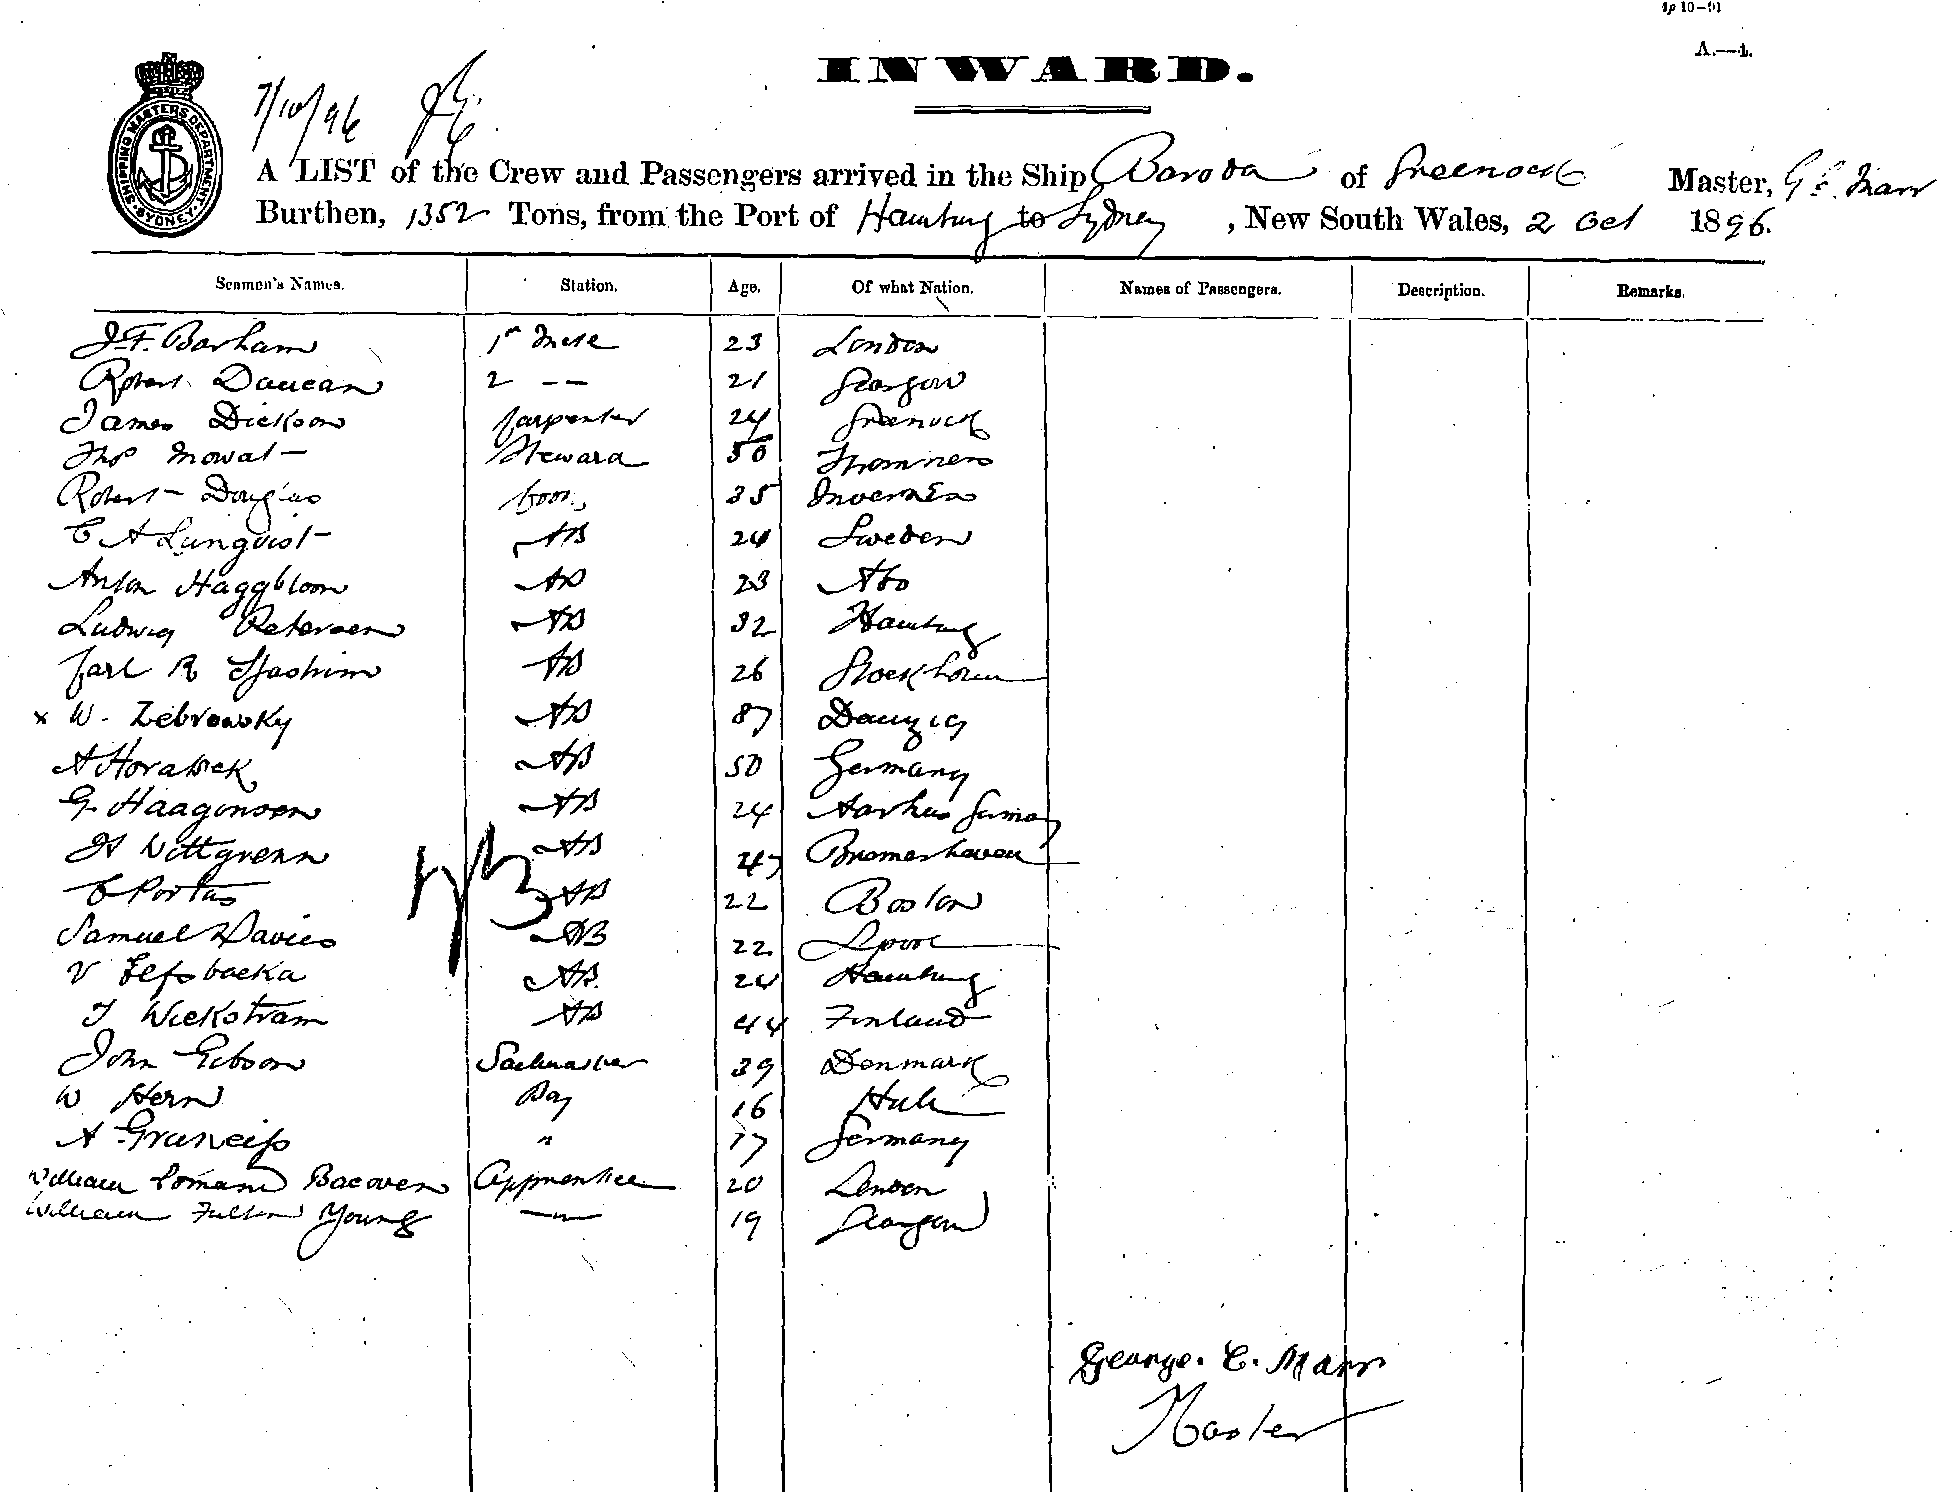 4p 10–91
A.—4.
INWARD.
SHIPPING MASTERS DEPARTMENT SYDNEY
7/10/96
A LIST of the Crew and Passengers arrived in the Ship Baroda of Greenock Master, Geo. Marr
Burthen, 1352 Tons, from the Port of Hamburg to Sydney, New South Wales, 2 Oct 1896.
Seamen's Names. Station. Age. Of what Nation. Names of Passengers. Description. Remarks.
J. F. Barham 1st Mate 23 London
Robert Duncan 2 -- 21 Glasgow
James Dickson Carpenter 24 Greenock
Thos Mowat Steward 50 Stromness
Robert Douglas Cook 35 Inverness
C A Lunqvist AB 24 Sweden
Anton Haggblom AB 23 Abo
Ludwig Petersen AB 32 Hamburg
Carl R AB 26 Stockholm
x W. Zebrowsky AB 37 Danzig
A Horabek AB 50 Germany
G. Haagonsen AB 24 Aarhus
H Wittgrenn AB 47 Bremerhaven
C Portus AB 22 Boston
Samuel Davies AB 22 Lpool
V AB. 24 Hamburg
J Wickstram AB 44 Finland
John Gibson Sailmaker 39 Denmark
W Hern Boy 16 Hull
A Graneiss " 17 Germany
William Bacoven Apprentice 20 London
William Fulton Young —"— 19 Glasgow
George. C. Marr
Master